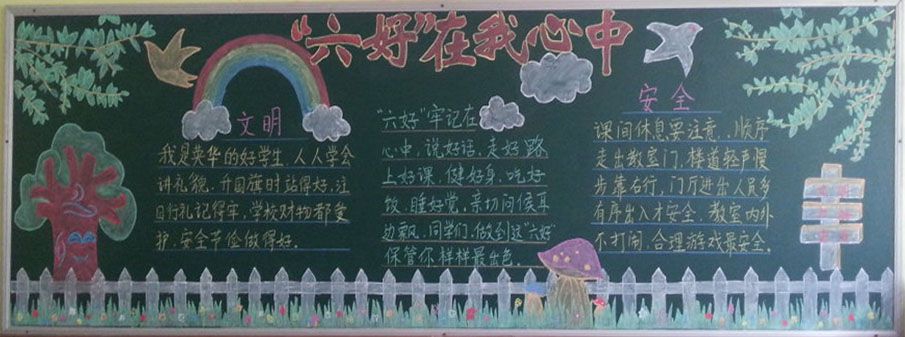 "六好"在我心中
文明
我是英华的好学生，人人学会
讲礼貌，升国旗时站得好，注
目行礼记得牢，学校财物都爱
护，安全节俭做得好。
"六好"牢记在
心中，说好话，走好路
上好课，健好身，吃好
饭，睡好觉，亲切问候耳
边飘，同学们，做到这"六好"
保管你样样最出色。
安全
课间休息要注意，顺序
走出教室门，楼道轻声慢
步靠右行，门厅进出人员多
有序出入才安全，教室内外
不打闹，合理游戏最安全。